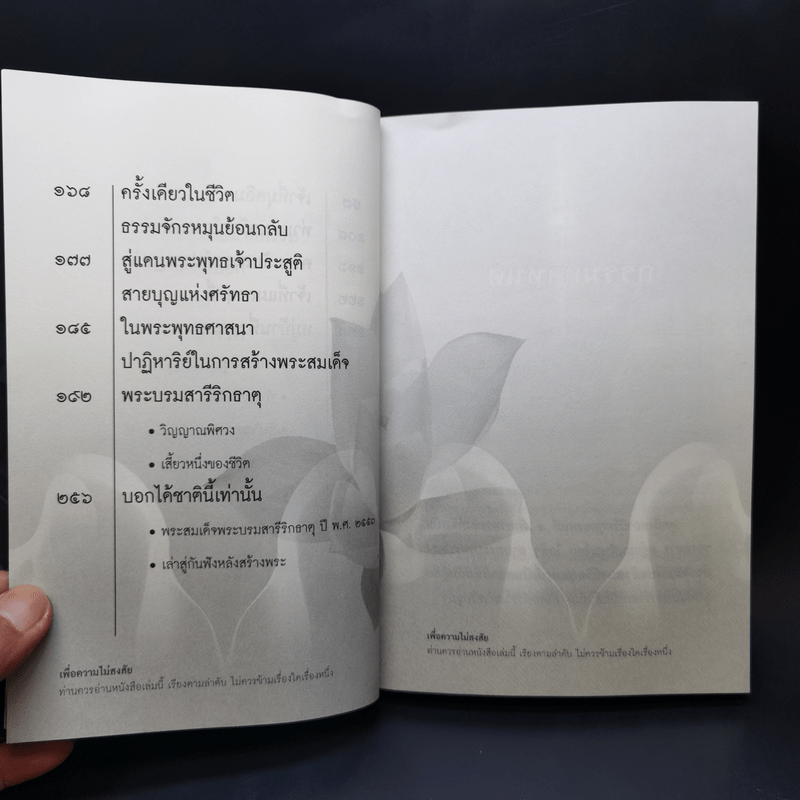 ๑๖๘ ครั้งเดียวในชีวิต
ธรรมจักรหมุนย้อนกลับ
๑๗๗ สู่แดนพระพุทธเจ้าประสูติ
สายบุญแห่งศรัทธา
๑๘๕ ในพระพุทธศาสนา
ปาฏิหาริย์ในการสร้างพระสมเด็จ
๑๙๒ พระบรมสารีริกธาตุ
• วิญญาณพิศวง
• เสี้ยวหนึ่งของชีวิต
๒๕๖ บอกได้ชาตินี้เท่านั้น
• พระสมเด็จพระบรมสารีริกธาตุ ปี พ.ศ. ๒๕๕๐
• เล่าสู่กันฟังหลังสร้างพระ
เพื่อความไม่สงสัย
ท่านควรอ่านหนังสือเล่มนี้ เรียงตามลำดับ ไม่ควรข้ามเรื่องใดเรื่องหนึ่ง
เพื่อความไม่สงสัย
ท่านควรอ่านหนังสือเล่มนี้ เรียงตามลำดับ ไม่ควรข้ามเรื่องใดเรื่องหนึ่ง